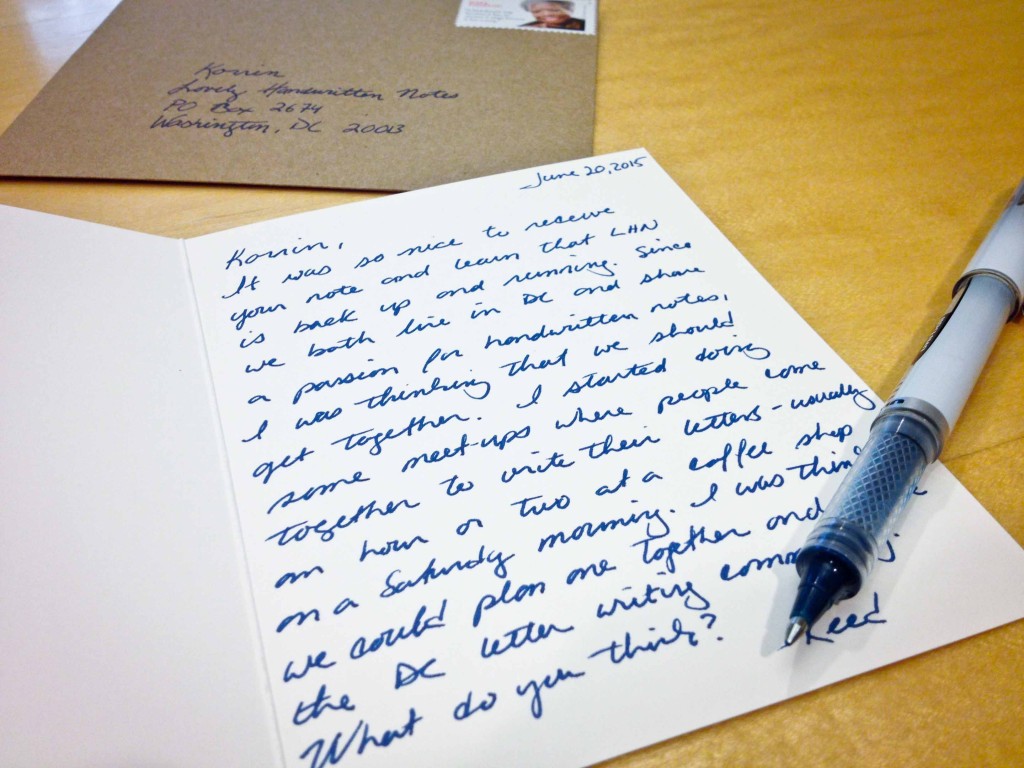 Korrin
Lovely Handwritten Notes
PO Box 2674
Washington, DC 20013
June 20, 2015
Korrin,
It was so nice to receive
your note and learn that LHN
is back up and running. Since
we both live in DC and share
a passion for handwritten notes,
I was thinking that we should
get together. I started doing
some meet-ups where people come
together to write their letters - usually
an hour or two at a coffee shop
on a Saturday morning. I was thin
we could plan one together and
the DC letter writing comm
What do you think? Reed